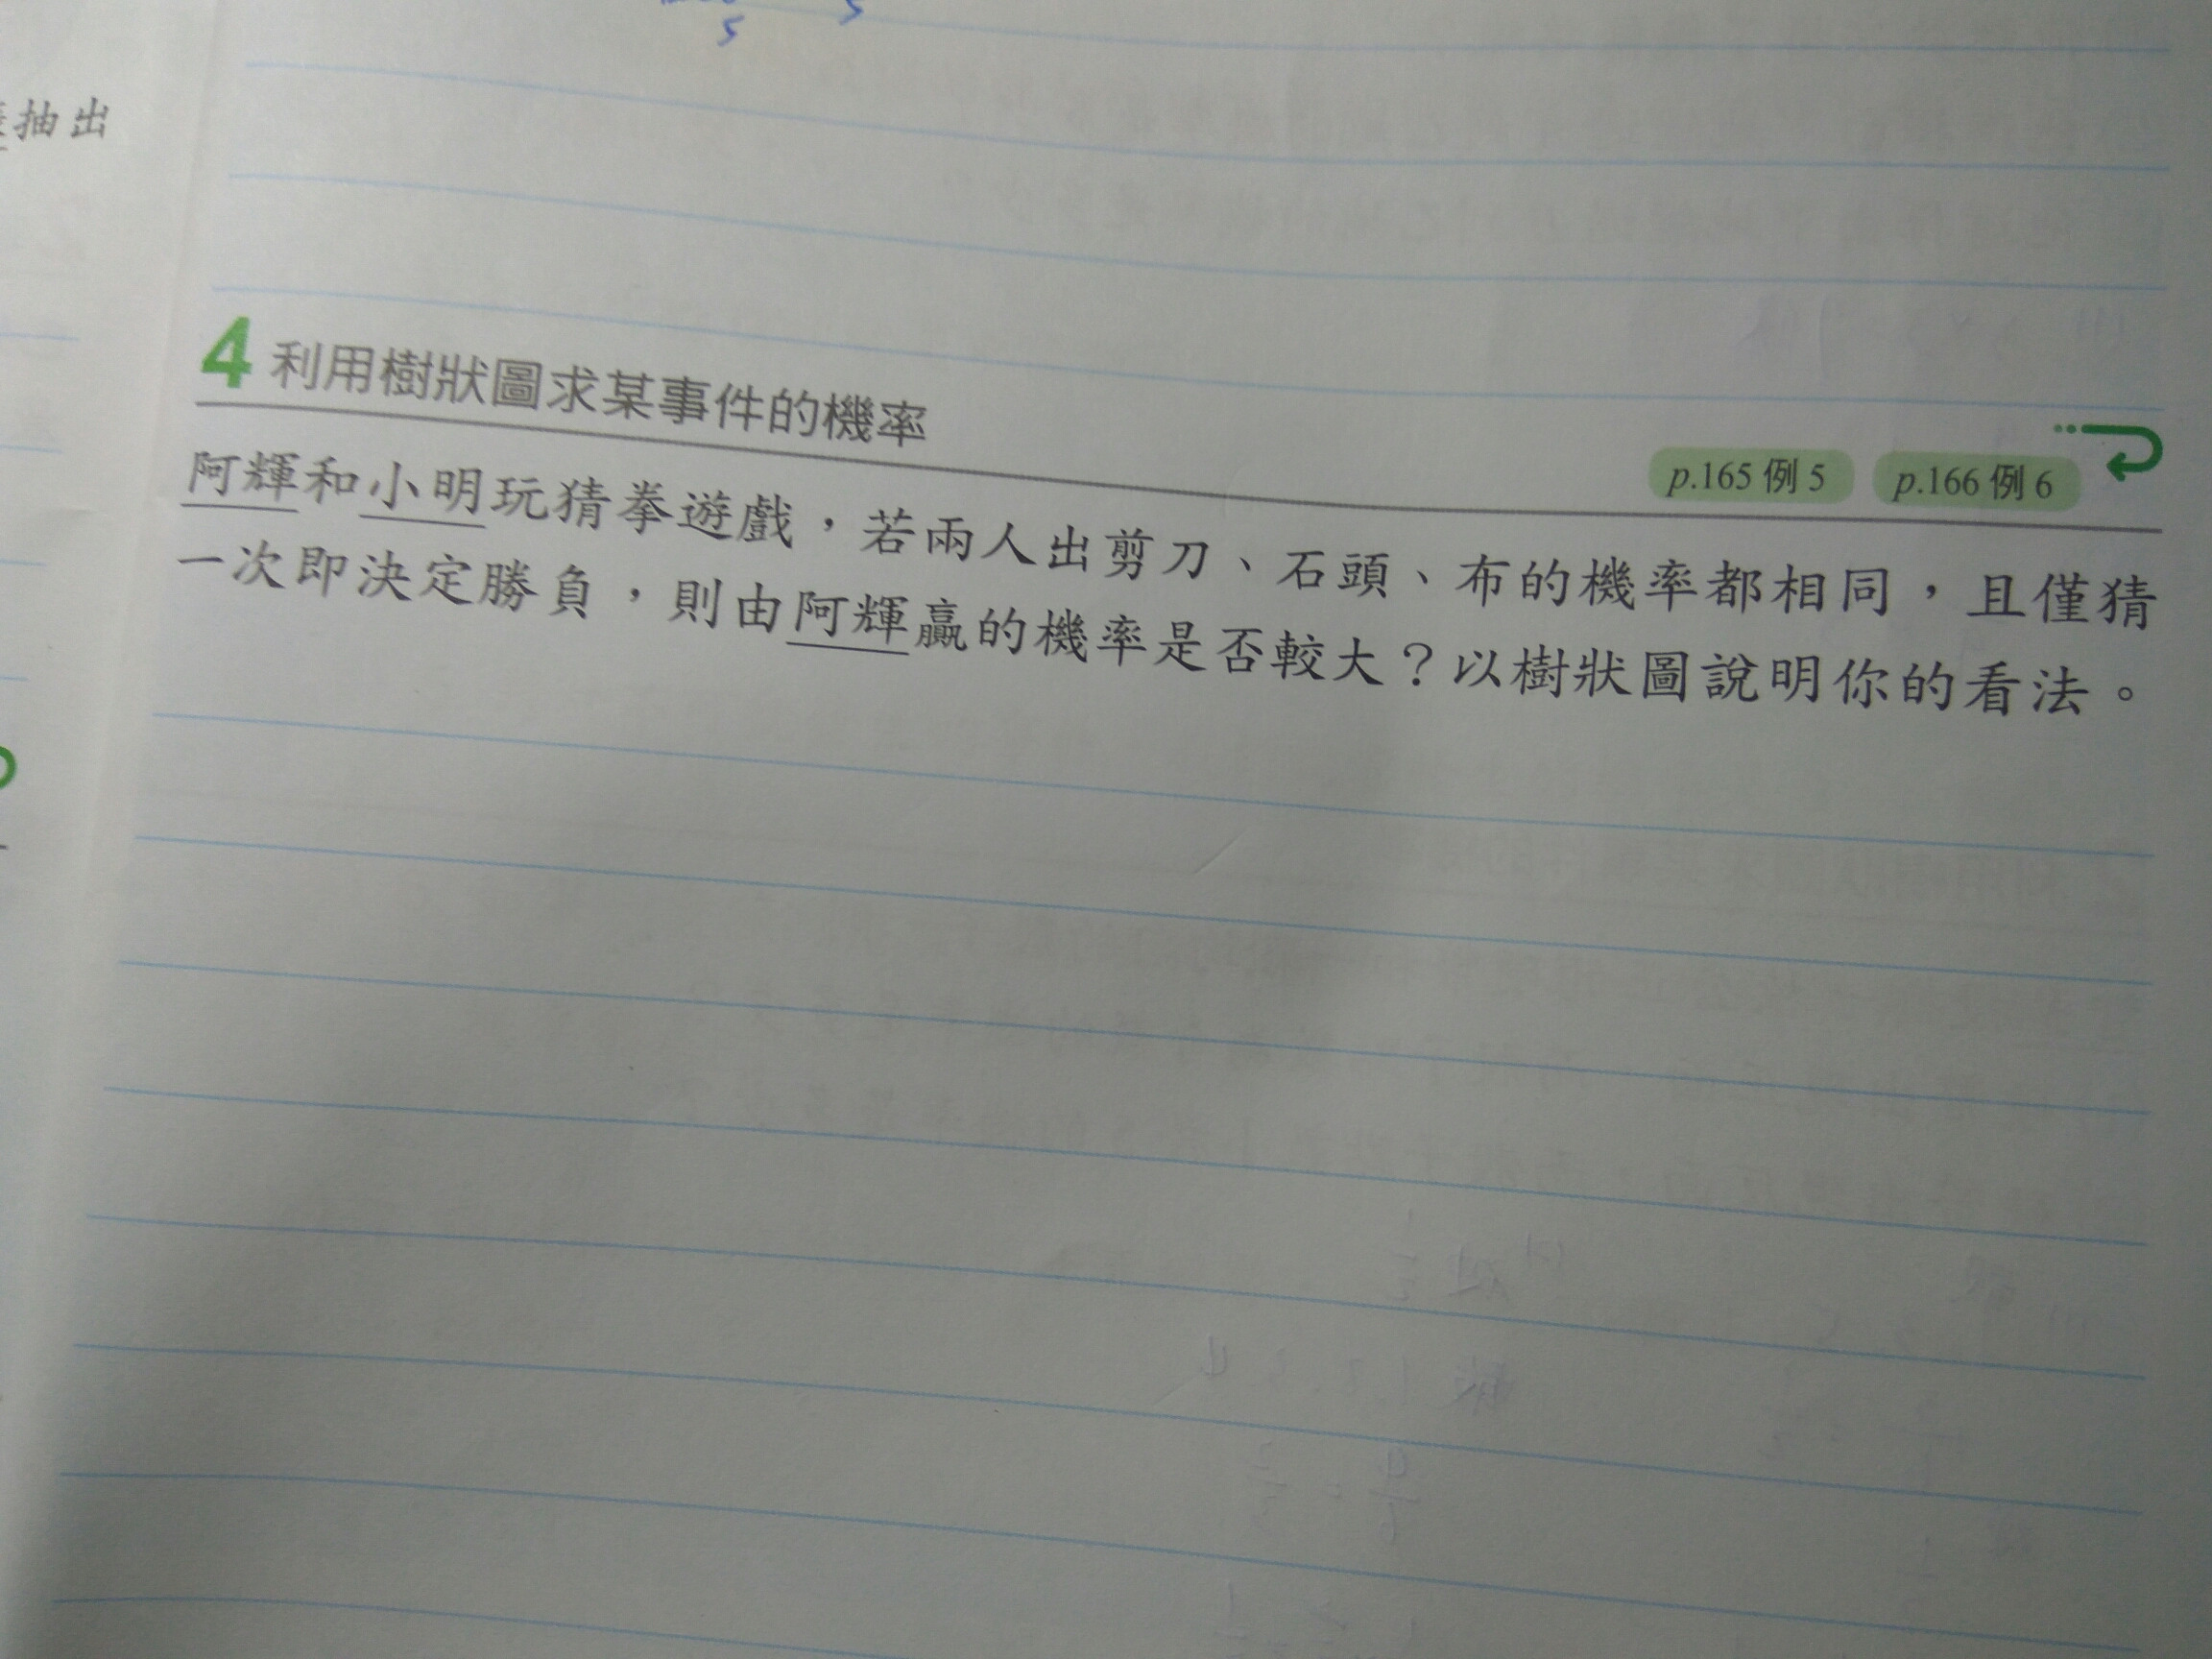 5
抽出
4 利用樹狀圖求某事件的機率
p.165 例 5 p.166 例 6
阿輝和小明玩猜拳遊戲，若兩人出剪刀、石頭、布的機率都相同，且僅猜
一次即決定勝負，則由阿輝贏的機率是否較大？以樹狀圖說明你的看法。